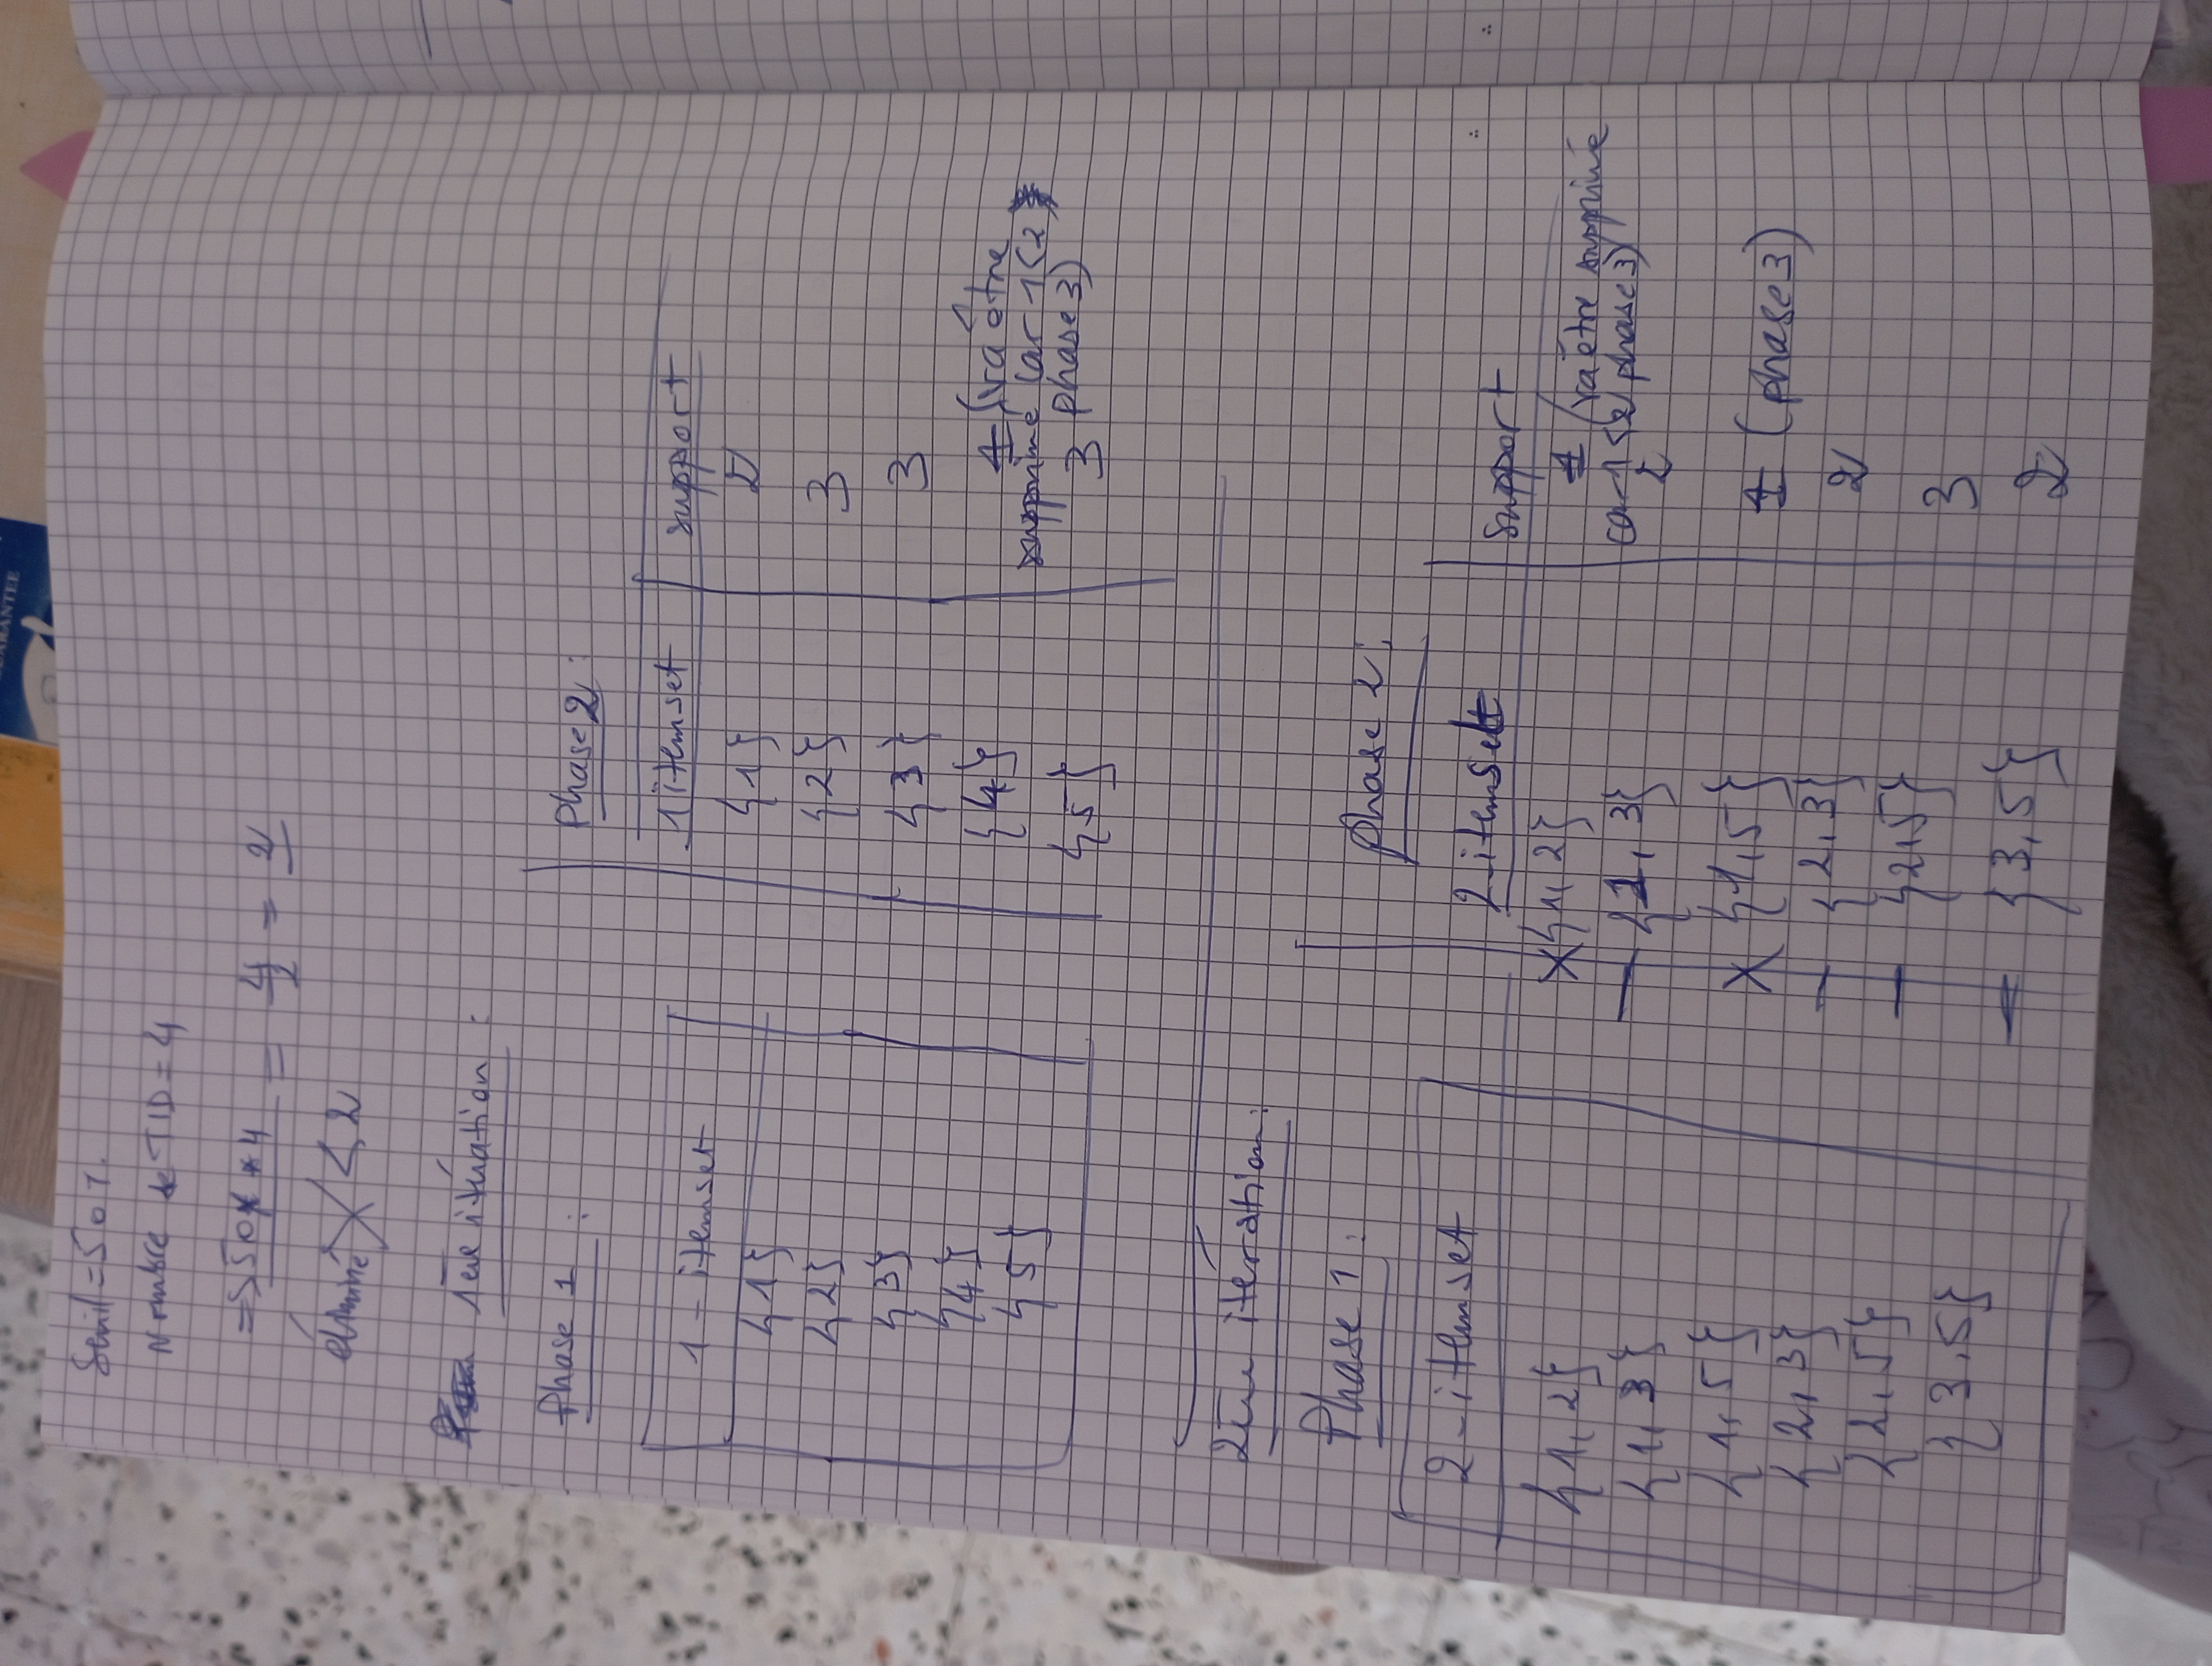 GUARANTEE
Seuil = 50%
Nombre de TID = 4
=> 50% * 4 = 4/2 = 2
éliminé X < 2
1ère itération :
Phase 1 :
1 - itemset
{1}
{2}
{3}
{4}
{5}
Phase 2 :
1 itemset support
{1} 2
{2} 3
{3} 3
{4} 1 (va être
supprimé car 1<2
phase 3)
{5} 3
2ème itération :
Phase 1 :
2 - itemset
{1, 2}
{1, 3}
{1, 5}
{2, 3}
{2, 5}
{3, 5}
phase 2 :
2-itemset support
X {1, 2} 1 (va être supprimé
car 1 <2 phase 3)
— {1, 3} 2
X {1,5} 1 (phase 3)
— {2, 3} 2
— {2,5} 3
— {3, 5} 2